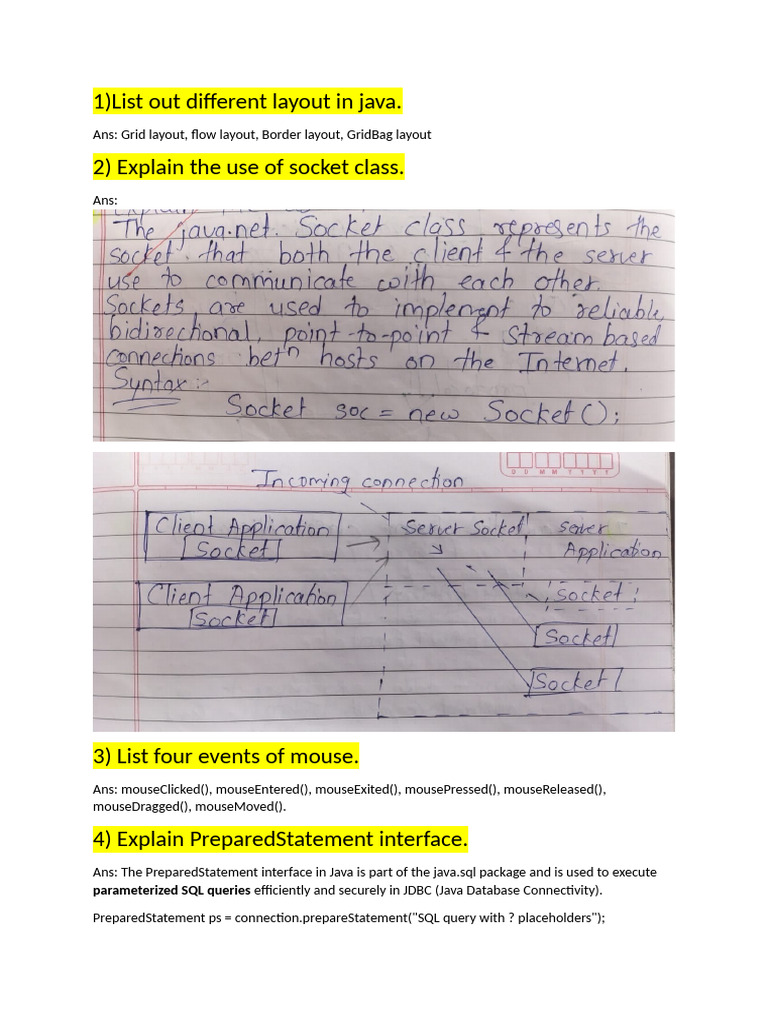 1)List out different layout in java.
Ans: Grid layout, flow layout, Border layout, GridBag layout
2) Explain the use of socket class.
Ans:
The java.net. Socket class represents the
socket that both the client & the server
use to communicate with each other.
Sockets are used to implement to reliable,
bidirectional, point-to-point & stream based
connections betn hosts on the Internet.
Syntax:-
Socket soc = new Socket();
D D M M Y Y Y Y
Incoming connection
Client Application
Socket
Server Socket
Server
Application
Client Application
Socket
Socket
Socket
Socket
3) List four events of mouse.
Ans: mouseClicked(), mouseEntered(), mouseExited(), mousePressed(), mouseReleased(),
mouseDragged(), mouseMoved().
4) Explain PreparedStatement interface.
Ans: The PreparedStatement interface in Java is part of the java.sql package and is used to execute
parameterized SQL queries efficiently and securely in JDBC (Java Database Connectivity).
PreparedStatement ps = connection.prepareStatement("SQL query with ? placeholders");